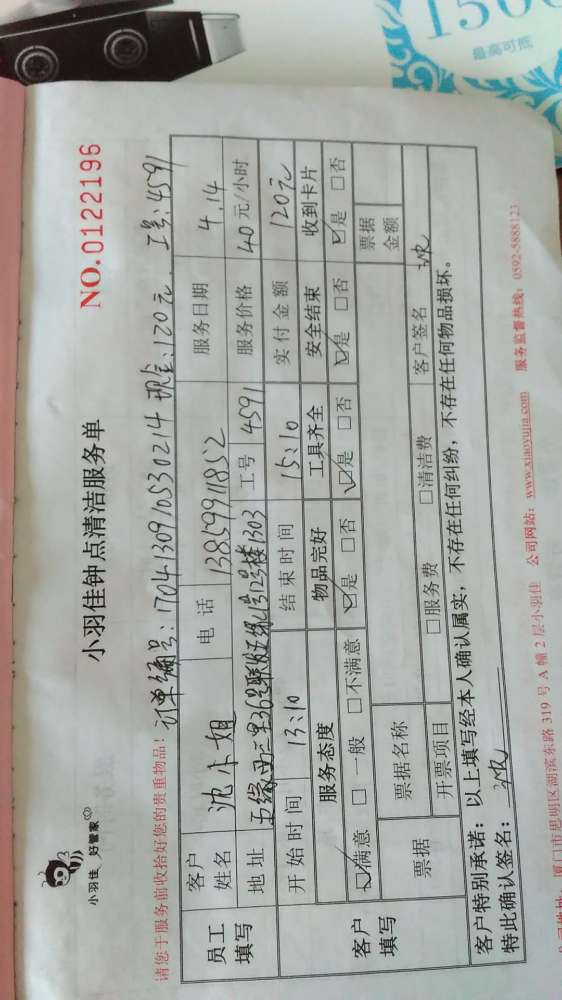 小羽佳 好管家
小羽佳钟点清洁服务单
NO.0122196
请您于服务前收拾好您的贵重物品！
订单编号：1704130910530214 现金：120元．工号：4591
员工填写
客户姓名 沈小姐 电话 13859911852 服务日期 4.14
地址 五缘西二里36号 12号楼1303 工号 4591 服务价格 40元/小时
客户填写
开始时间 13:10 结束时间 15:10 实付金额 120元
服务态度 物品完好 工具齐全 安全结束 收到卡片
☑满意 □一般 □不满意 ☑是 □否 ☑是 □否 ☑是 □否 ☑是 □否
票据 票据名称 票据金额
开票项目 □服务费 □清洁费 客户签名
客户特别承诺：以上填写经本人确认属实，不存在任何纠纷，不存在任何物品损坏。
特此确认签名：
厦门市思明区湖滨东路319号A幢2层小羽佳 公司网站：www.xiaoyujia.com 服务监督热线：0592-5888123
1500
最高可抵